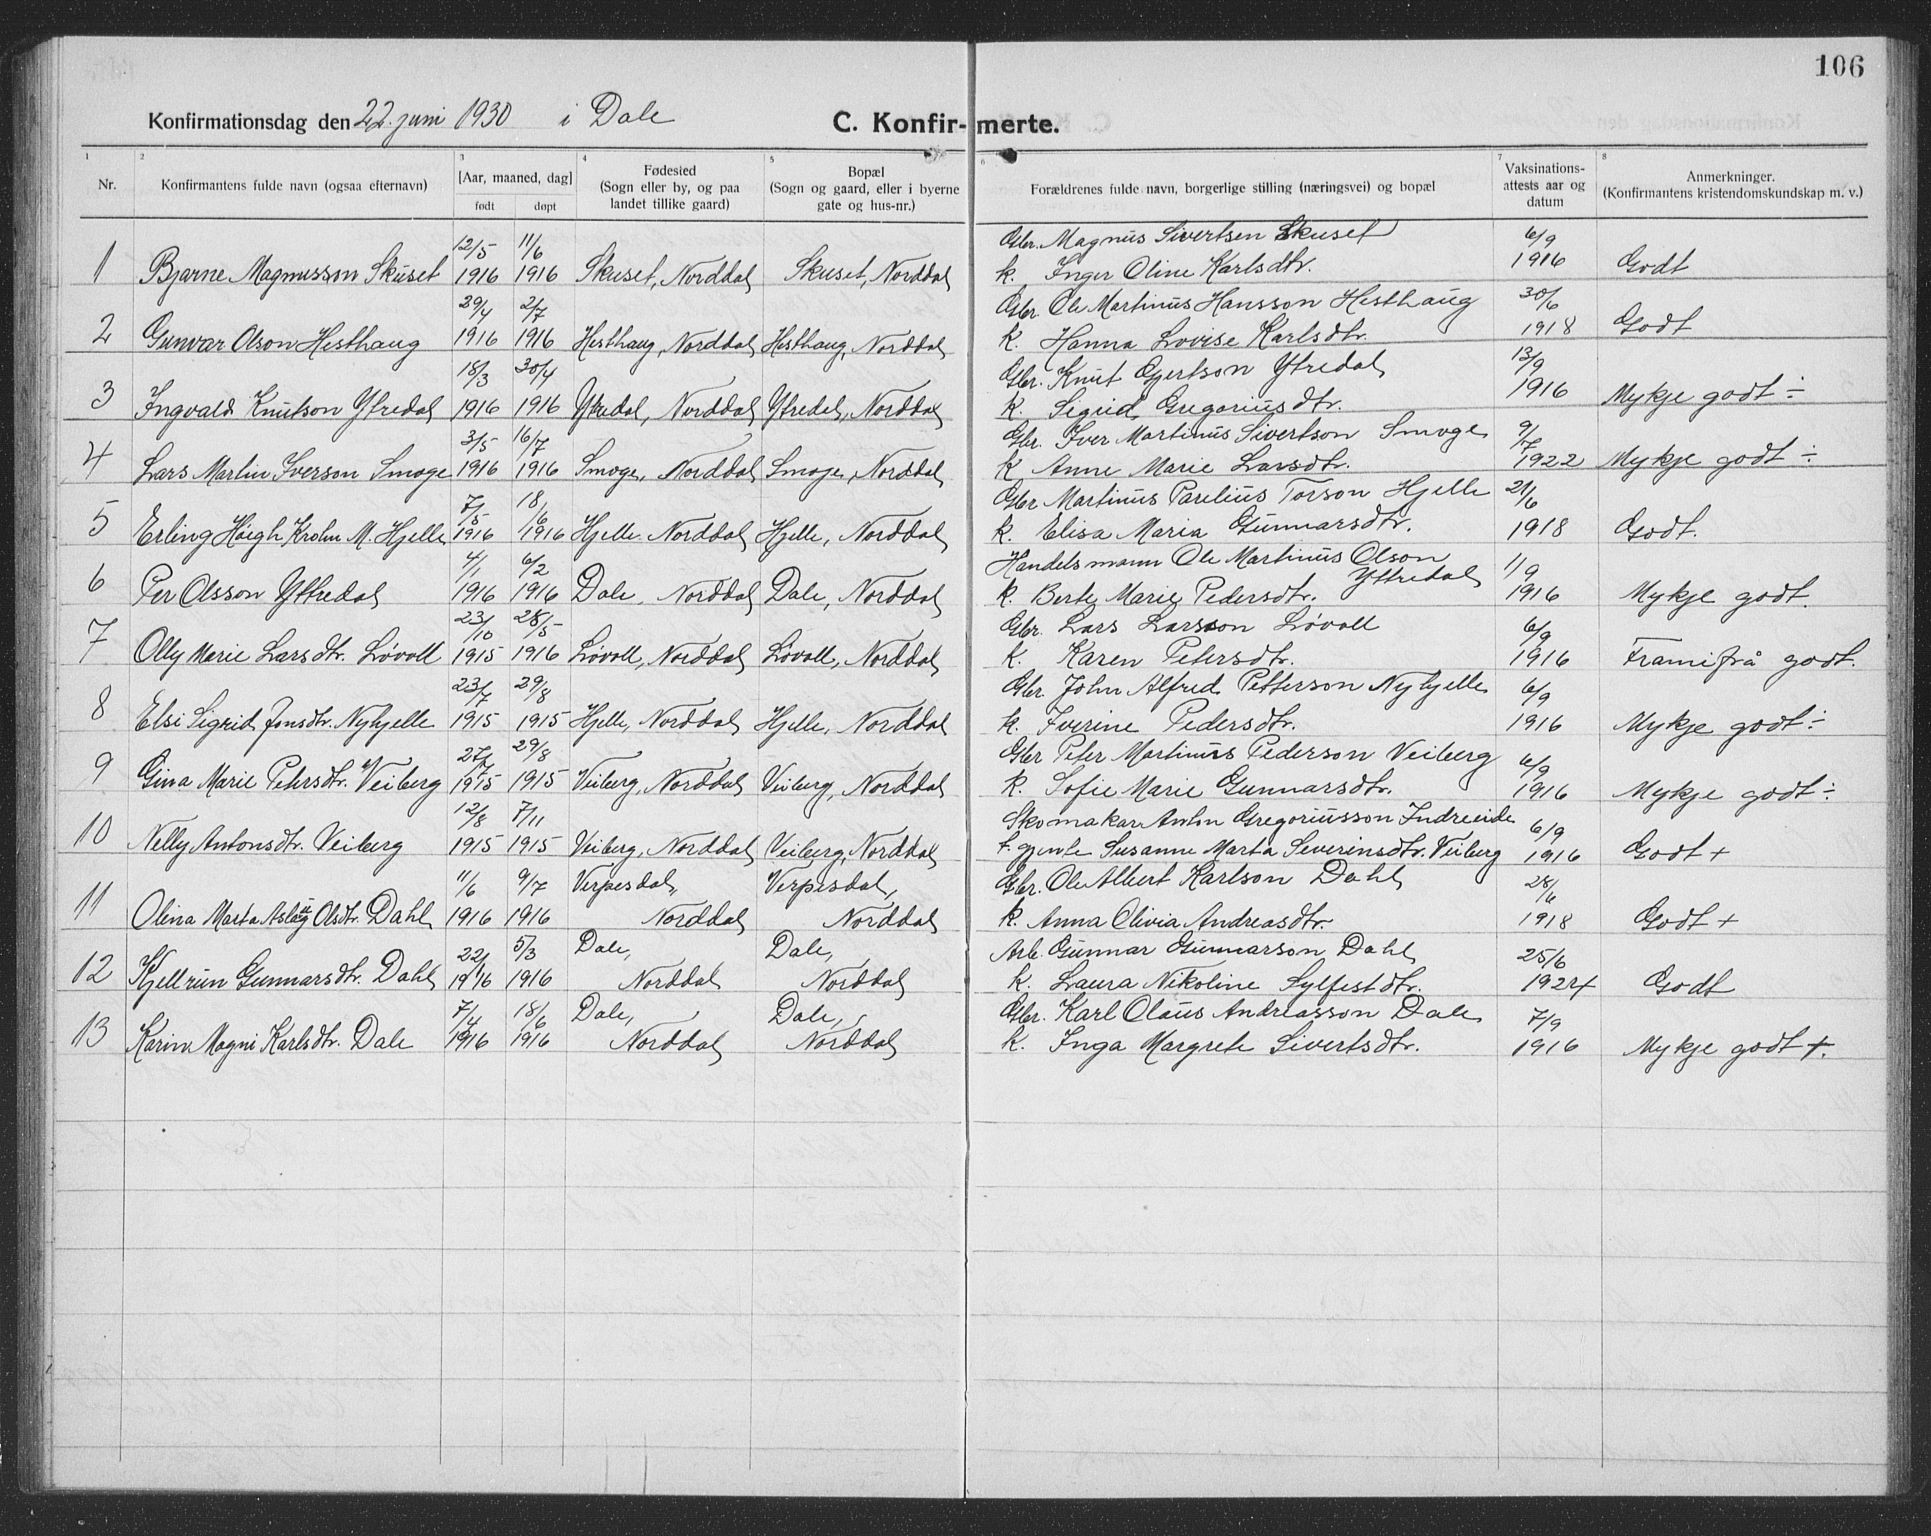 106
Konfirmationsdag den 22. juni 1930 i Dale
C. Konfir-merte.
1 2 3 4 5 6 7 8
Nr.
Konfirmantens fulde navn (ogsaa efternavn)
[Aar, maaned, dag]
født døpt
Fødested
(Sogn eller by, og paa
landet tillike gaard)
Bopæl
(Sogn og gaard, eller i byerne
gate og hus-nr.)
Forældrenes fulde navn, borgerlige stilling (næringsvei) og bopæl
Vaksinations-
attests aar og
datum
Anmerkninger.
(Konfirmantens kristendomskundskap m. v.)
12/5 11/6 Gbr. Magnus Sivertsen Skuset 6/9
1 Bjarne Magnusson Skuset 1916 1916 Skuset, Norddal Skuset, Norddal k. Inger Oline Karlsdtr. 1916 Godt
29/4 2/7 Gbr. Ole Martinus Hansson Hesthaug 30/6
2 Gunvar Olson Hesthaug 1916 1916 Hesthaug, Norddal Hesthaug, Norddal k. Hanna Lovise Karlsdtr. 1918 Godt
18/3 30/4 Gbr. Knut Ogertson Ytredal 13/9
3 Ingvald Knutson Ytredal 1916 1916 Ytredal, Norddal Ytredal, Norddal k. Sigrid Gregoriusdtr. 1916 Mykje godt ÷
3/5 16/7 Gbr. Iver Martinus Sivertson Smoge 9/7
4 Lars Martin Iverson Smoge 1916 1916 Smoge, Norddal Smoge, Norddal k Anne Marie Larsdtr. 1922 Mykje godt ÷
7/5 18/6 Gbr Martinus Parelius Torson Hjelle 21/6
5 Erling Høigh Krohn M. Hjelle 1916 1916 Hjelle. Norddal Hjelle, Norddal k. Elisa Maria Gunnarsdtr. 1918 Godt.
4/1 6/2 Handelsmann Ole Martinus Olson Yttredal 1/9
6 Per Olsson Yttredal 1916 1916 Dale, Norddal Dale, Norddal k. Berte Marie Pedersdtr. 1916 Mykje godt.
23/10 28/5 Gbr. Lars Larsson Løvoll 6/9
7 Olly Marie Larsdtr. Løvoll 1915 1916 Løvoll, Norddal Løvoll, Norddal k. Karen Petersdtr. 1916 Framifrå godt.
23/7 29/8 Gbr. John Alfred Petterson Nyhjelle 6/9
8 Elsi Sigrid Jonsdtr. Nyhjelle 1915 1915 Hjelle, Norddal Hjelle, Norddal k. Iverine Pedersdtr. 1916 Mykje godt ÷
27/7 29/8 Gbr Peter Martinus Pederson Veiberg 6/9
9 Gina Marie Petersdtr. Veiberg 1915 1915 Veiberg, Norddal Veiberg, Norddal k. Sofie Marie Gunnarsdtr. 1916 Mykje godt ÷
12/8 7/11 Skomakar Anton Gregoriusson Indreeide 6/9
10 Nelly Antonsdtr. Veiberg 1915 1915 Veiberg, Norddal Veiberg, Norddal f. gjente Susanne Marta Severinsdtr. Veiberg 1916 Godt +
11/6 9/7 Verpesdal, Verpesdal, Gbr. Ole Albert Karlson Dahl 28/6
11 Olina Marta Aslaug Olsdtr. Dahl 1916 1916 Norddal Norddal k. Anna Olivia Andreasdtr. 1918 Godt +
22/1 5/3 Dale, Dale, Arb. Gunnar Gunnarson Dahl 25/6
12 Kjellrun Gunnarsdtr. Dahl 1916 1916 Norddal Norddal k. Laura Nikoline Sylfestdtr. 1924 Godt
7/4 18/6 Dale, Dale, Gbr. Karl Olaus Andreasson Dale 7/9
13 Karin Magni Karlsdtr. Dale 1916 1916 Norddal Norddal k. Inga Margrete Sivertsdtr. 1916 Mykje godt +.